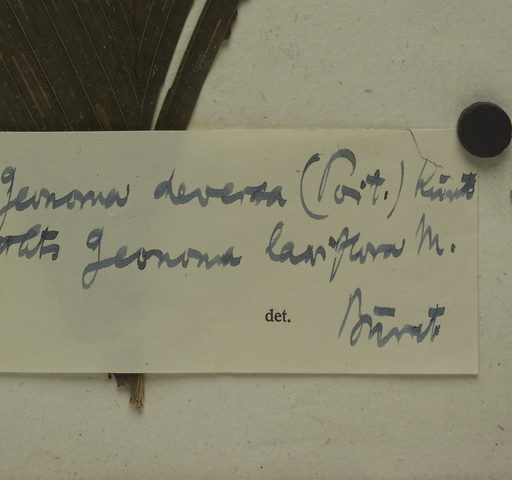 Geonoma deversa (Poit.) Kunth
Geonoma laxiflora M.
det.
Burret